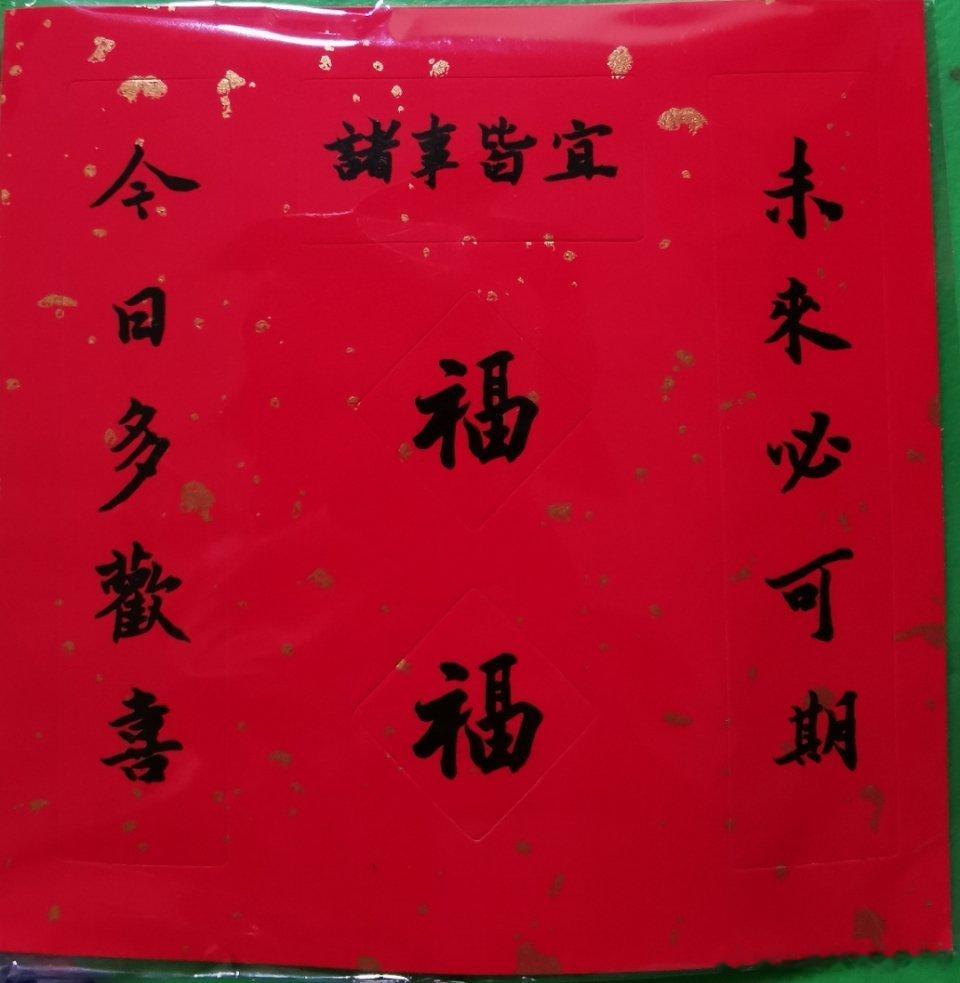 諸事皆宜
今日多歡喜
福
福
未來必可期